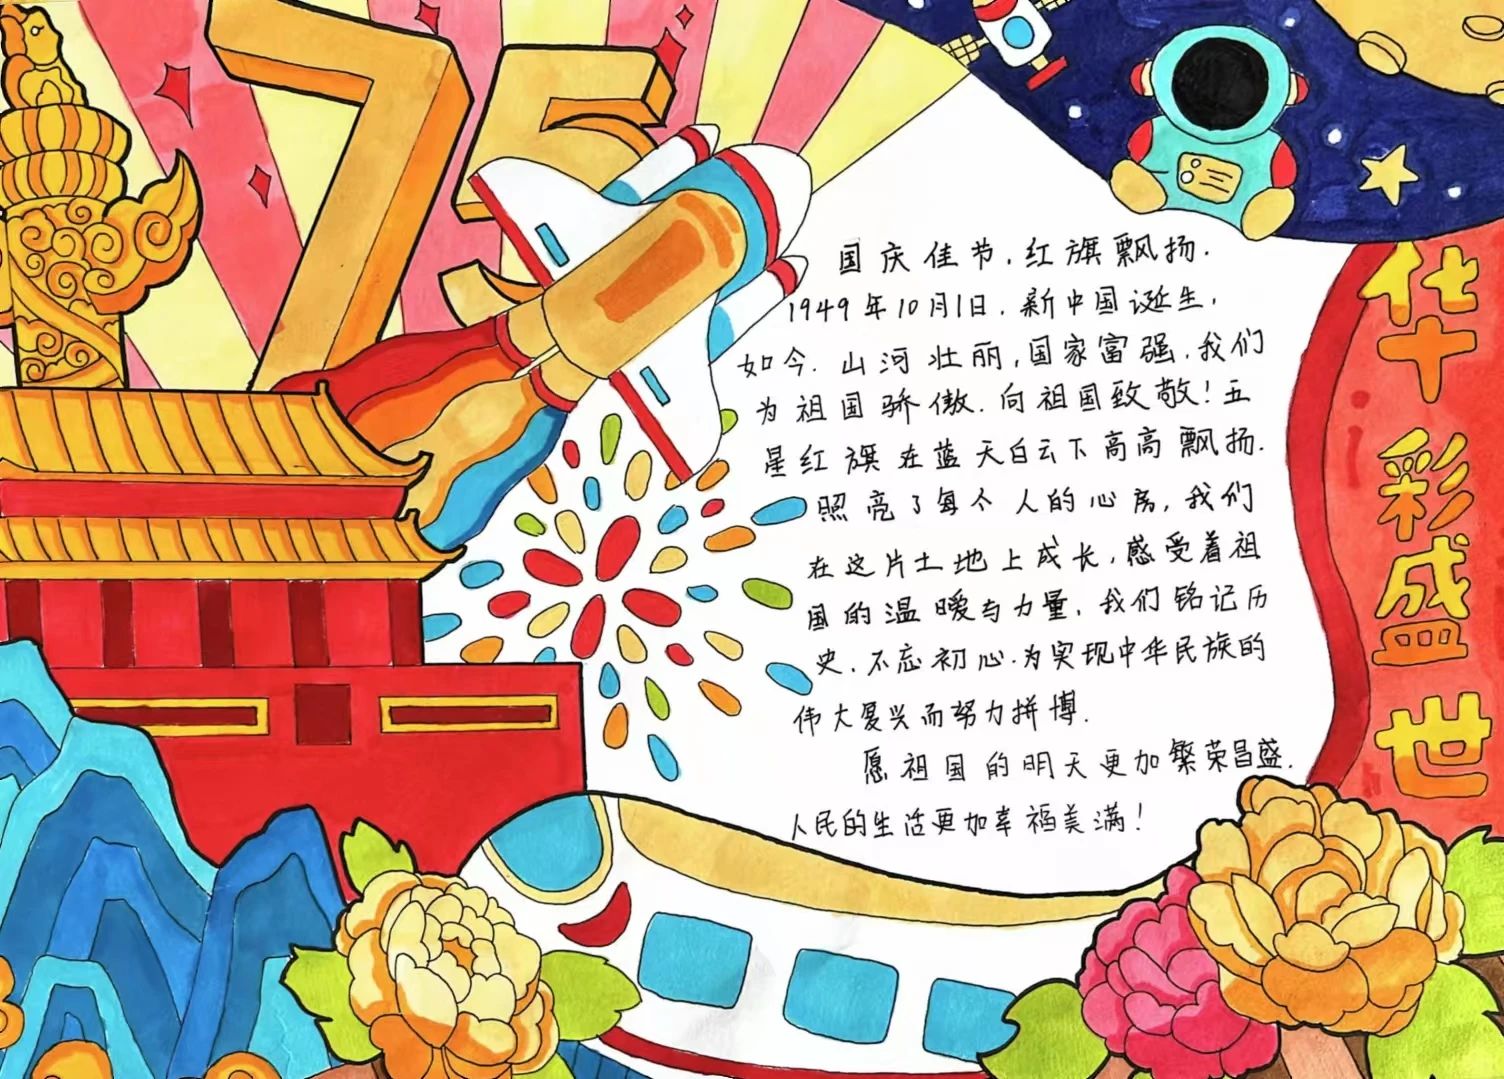 75
国庆佳节，红旗飘扬．
1949年10月1日．新中国诞生，
如今．山河壮丽，国家富强．我们
为祖国骄傲．向祖国致敬！五
星红旗在蓝天白云下高高飘扬．
照亮了每个人的心房，我们
在这片土地上成长，感受着祖
国的温暖与力量，我们铭记历
史．不忘初心．为实现中华民族的
伟大复兴而努力拼搏．
愿祖国的明天更加繁荣昌盛．
人民的生活更加幸福美满！
华彩盛世